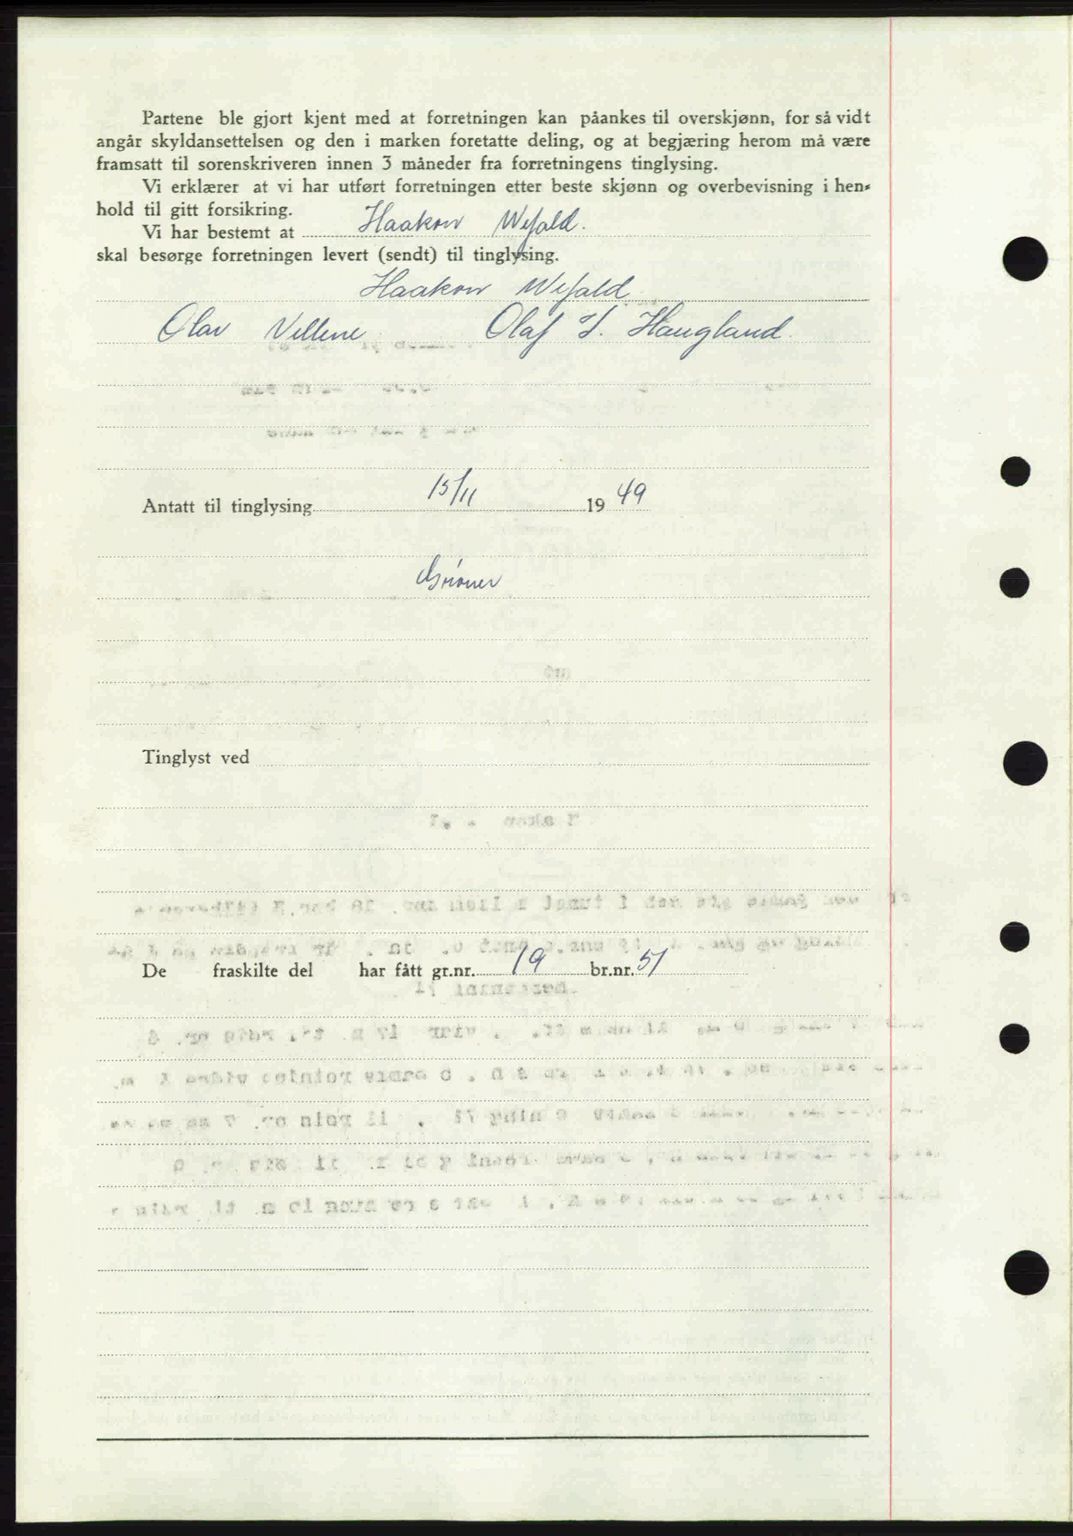 Partene ble gjort kjent med at forretningen kan påankes til overskjønn, for så vidt
angår skyldansettelsen og den i marken foretatte deling, og at begjæring herom må være
framsatt til sorenskriveren innen 3 måneder fra forretningens tinglysing.
Vi erklærer at vi har utført forretningen etter beste skjønn og overbevisning i hen-
hold til gitt forsikring.
Vi har bestemt at Haakon Wefald.
skal besørge forretningen levert (sendt) til tinglysing.
Haakon Wefald
Olav Olaf Haugland.
Antatt til tinglysing 15/11 1949
Tinglyst ved
De fraskilte del har fått gr.nr. 19 br.nr. 51